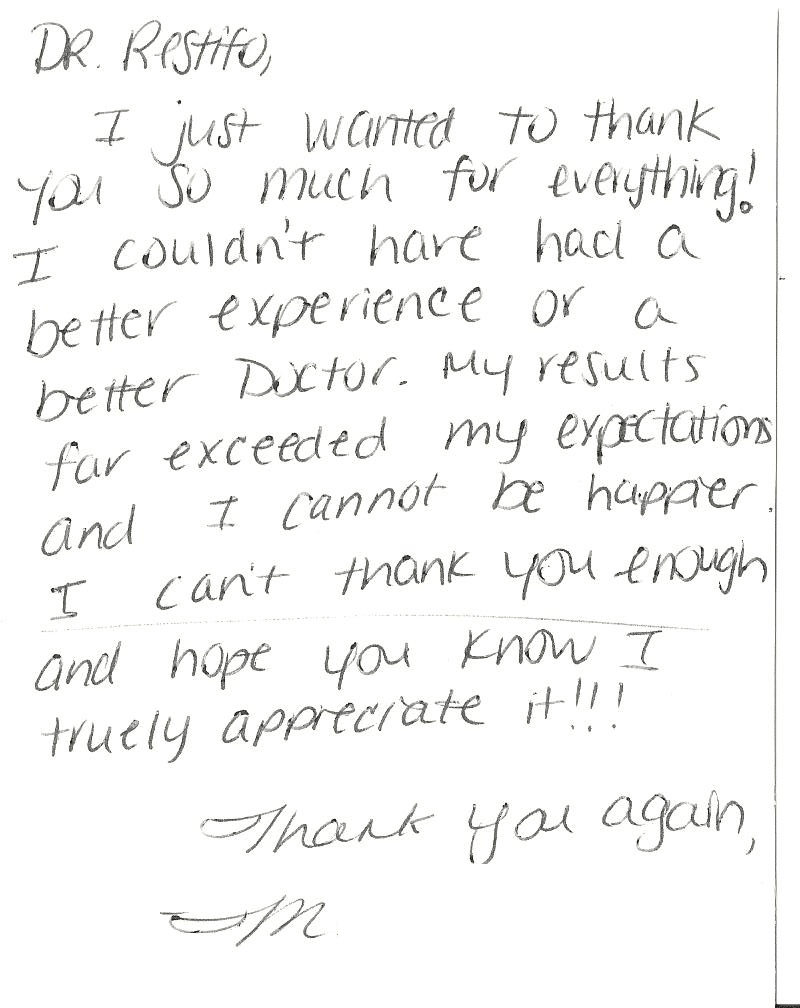 DR. Restifo,
I just wanted to thank
you so much for everything!
I couldn't have had a
better experience or a
better Doctor. My results
far exceeded my expectations
and I cannot be happier.
I can't thank you enough
and hope you know I
truely appreciate it!!!
Thank you again,
JM